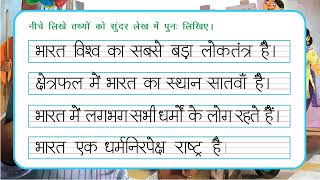 नीचे लिखे तथ्यों को सुंदर लेख में पुनः लिखिए।
भारत विश्व का सबसे बड़ा लोकतंत्र है।
क्षेत्रफल में भारत का स्थान सातवाँ है।
भारत में लगभग सभी धर्मों के लोग रहते हैं।
भारत एक धर्मनिरपेक्ष राष्ट्र है।